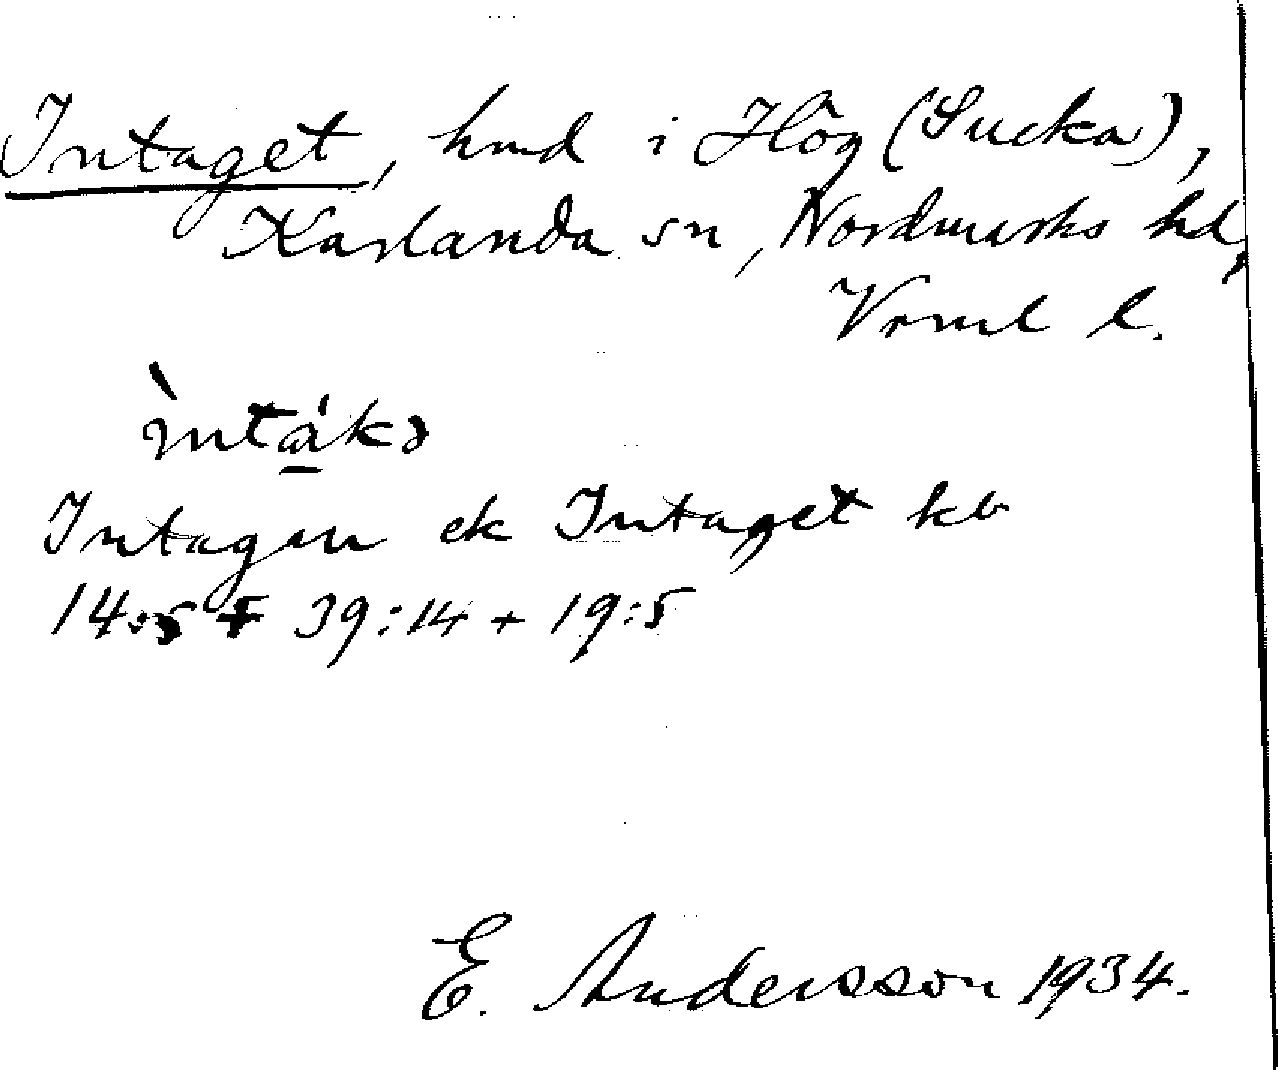 Intaget, hmd i Hög (Sucka),
Karlanda sn, Nordmarks hd,
Vrml l.
ìntákə
Intagen ek Intaget kb
14:5 + 39:14 + 19:5
E. Andersson 1934.